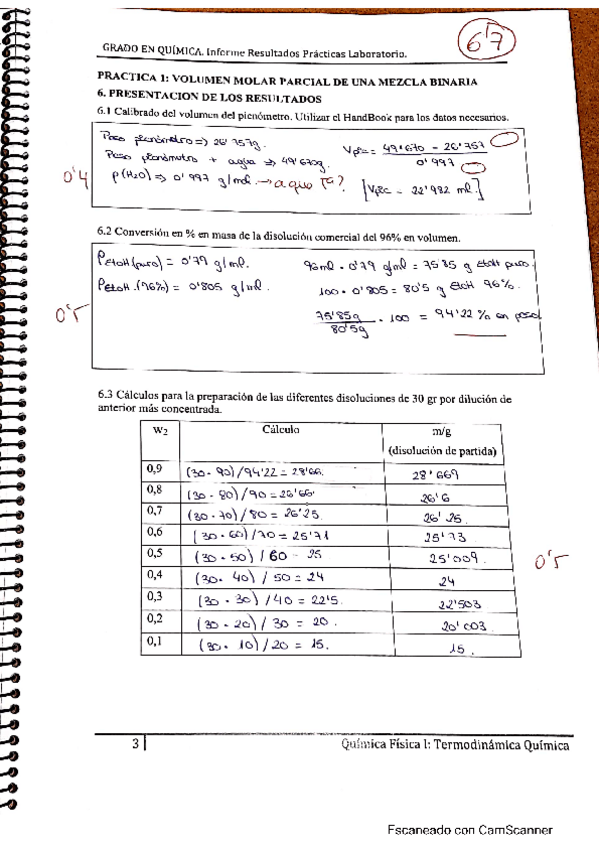 6'7
GRADO EN QUÍMICA. Informe Resultados Prácticas Laboratorio.
PRACTICA 1: VOLUMEN MOLAR PARCIAL DE UNA MEZCLA BINARIA
6. PRESENTACION DE LOS RESULTADOS
6.1 Calibrado del volumen del picnómetro. Utilizar el HandBook para los datos necesarios.
Peso picnómetro => 26'757g.
Peso picnómetro + agua => 49'670g.
ρ(H2O) => 0'997 g/ml. → a que Tª?
Vpic = 49'670 - 26'757
0'997
[Vpic - 22'982 ml.]
0'4
6.2 Conversión en % en masa de la disolución comercial del 96% en volumen.
ρetoH(puro) = 0'79 g/ml.
ρetoH.(96%) = 0'805 g/ml.
96ml · 0'79 g/ml = 75'85 g etoH puro
100 · 0'805 = 80'5 g etoH 96%.
75'85g
80'5g
· 100 = 94'22 % en peso
0'5
6.3 Cálculos para la preparación de las diferentes disoluciones de 30 gr por dilución de
anterior más concentrada.
W2 Cálculo m/g
(disolución de partida)
0,9 (30 · 90)/94'22 = 28'66. 28'669
0,8 (30 · 80)/90 = 26'66 26'6
0,7 (30 · 70)/80 = 26'25. 26'25
0,6 (30 · 60)/70 = 25'71 25'73
0,5 (30 · 50)/60 - 25 25'009.
0,4 (30 · 40)/50 = 24 24
0,3 (30 · 30)/40 = 22'5. 22'503
0,2 (30 · 20)/30 = 20. 20'003
0,1 (30 · 10)/20 = 15. 15.
0'5
3 Química Física I: Termodinámica Química
Escaneado con CamScanner